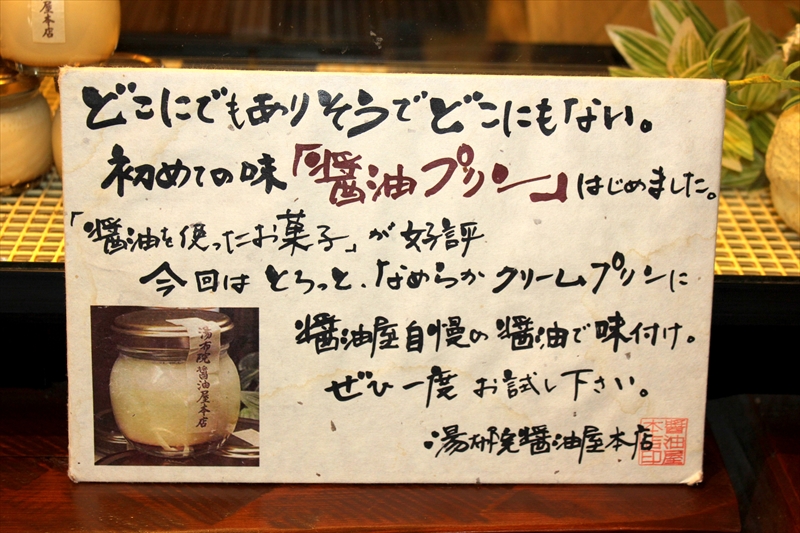 どこにでもありそうでどこにもない。
初めての味「醤油プリン」はじめました。
「醤油を使ったお菓子」が好評
今回はとろっと、なめらかクリームプリンに
醤油屋自慢の醤油で味付け。
ぜひ一度お試し下さい。
湯布院醤油屋本店
湯布院醤油屋本店
屋本店